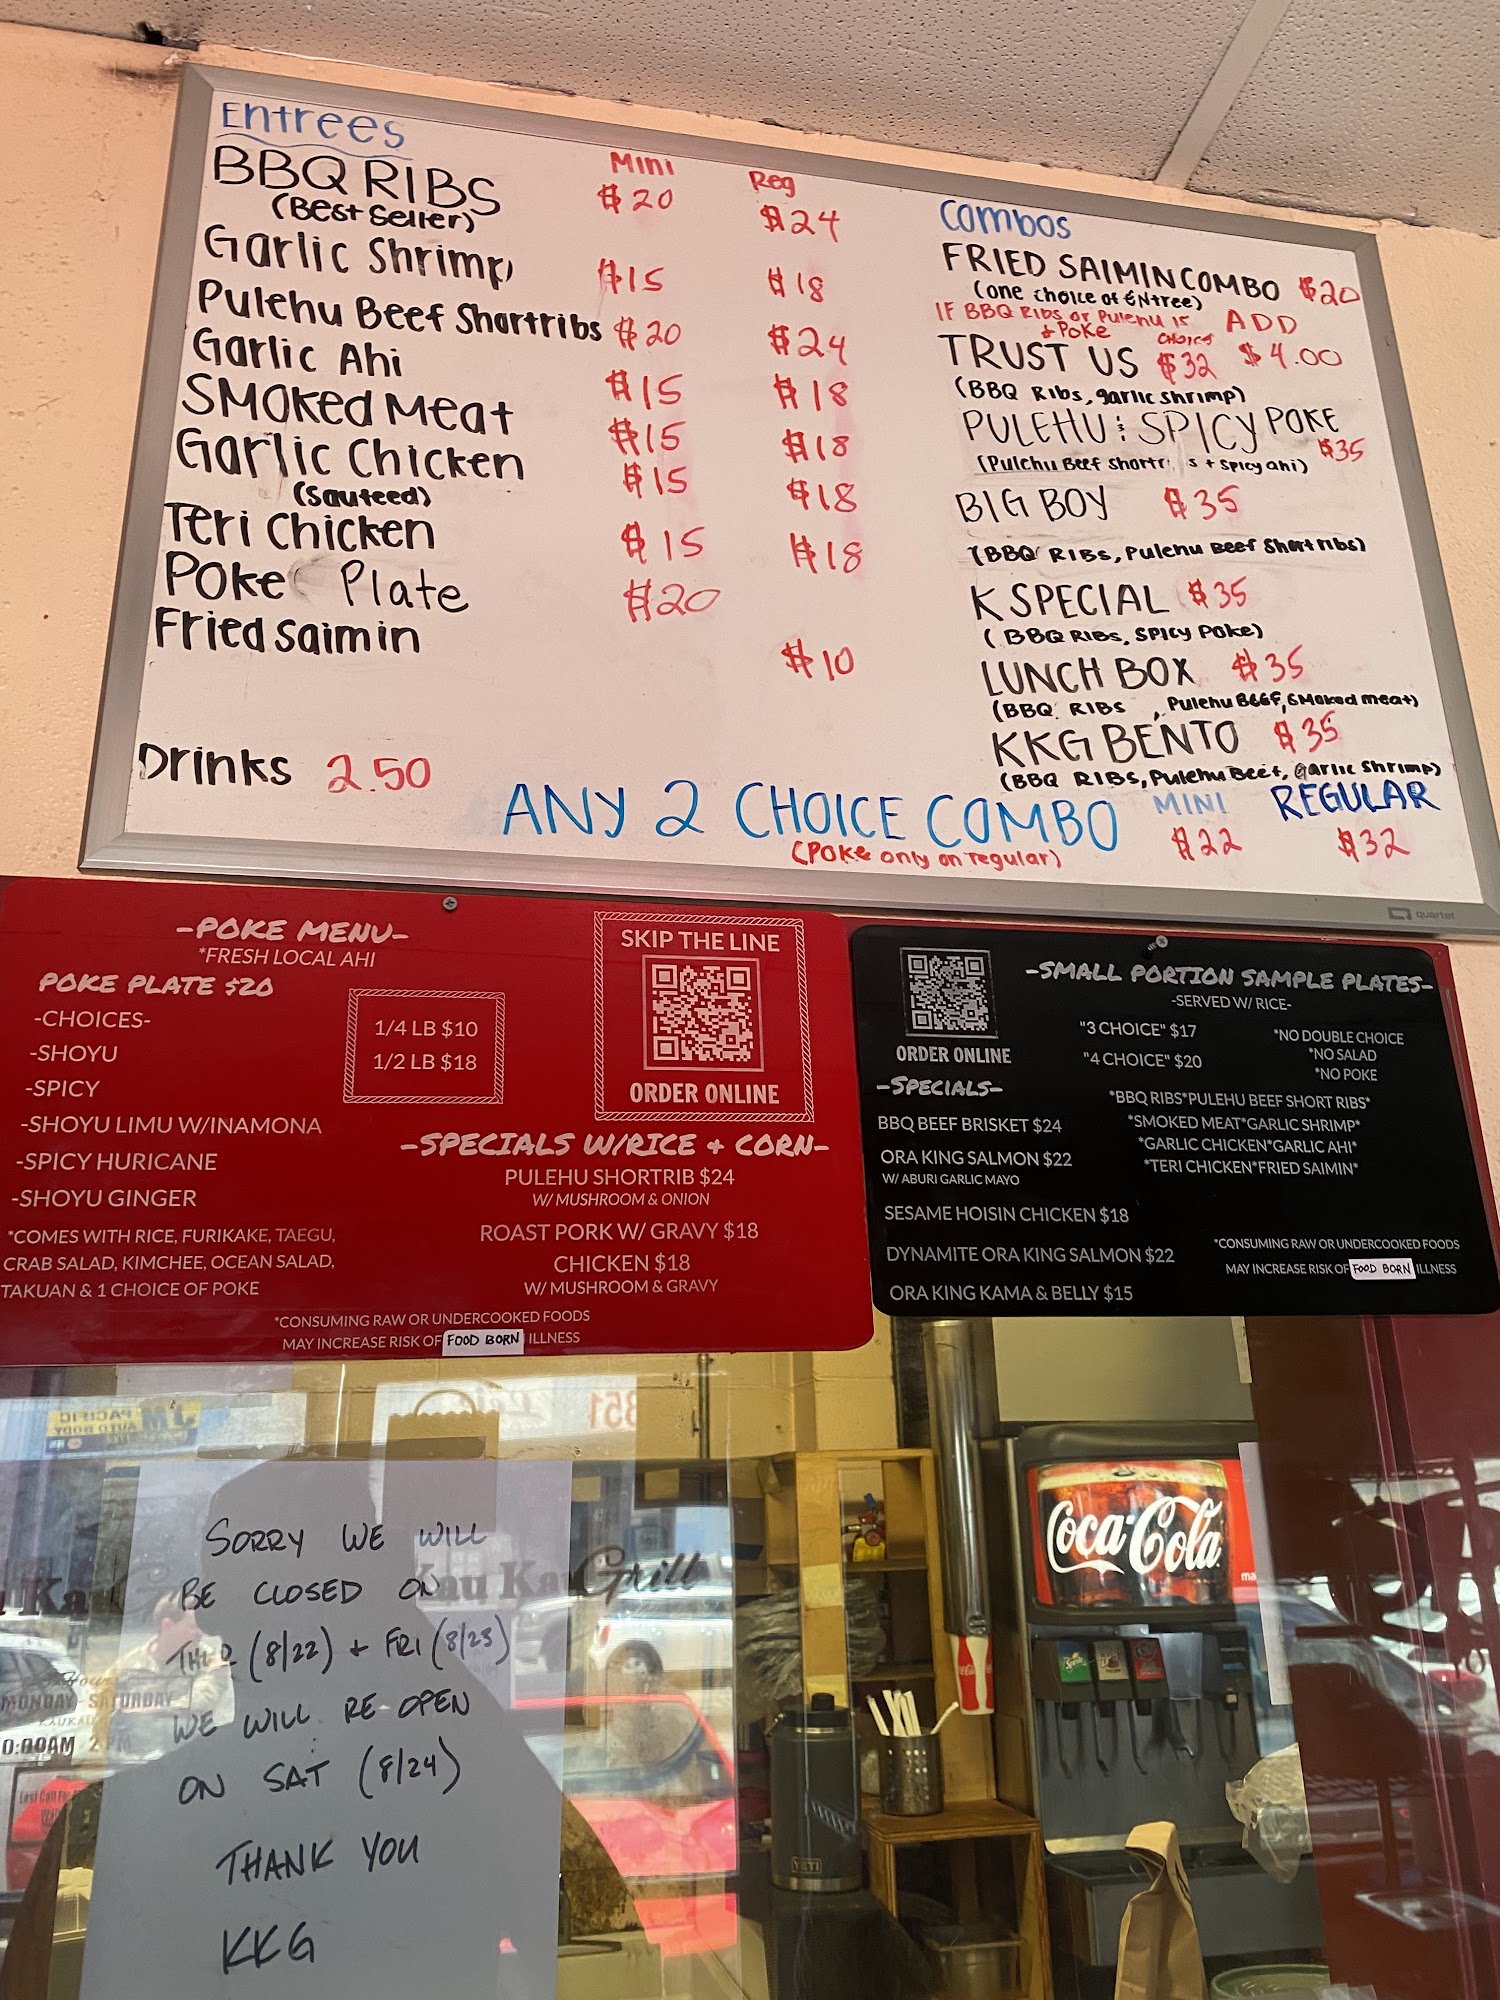 Entrees
Mini Reg
BBQ RIBS $20 $24
(Best Seller)
Garlic Shrimp $15 $18
Pulehu Beef Shortribs $20 $24
Garlic Ahi $15 $18
Smoked Meat $15 $18
Garlic Chicken $15 $18
(Sauteed)
Teri Chicken $15 $18
Poke Plate $20
Fried Saimin $10
Drinks 2.50
Combos
FRIED SAIMIN COMBO $20
(one choice of Entree)
IF BBQ Ribs or Pulehu is ADD
& Poke choice $4.00
TRUST US $32
(BBQ Ribs, garlic shrimp)
PULEHU & SPICY POKE $35
(Pulehu Beef shortr s + spicy ahi)
BIG BOY $35
(BBQ RIBS, Pulehu Beef Short ribs)
K SPECIAL $35
(BBQ RIBS, SPICY Poke)
LUNCH BOX $35
(BBQ RIBS , Pulehu Beef, Smoked meat)
KKG BENTO $35
(BBQ RIBS, Pulehu Beef, Garlic Shrimp)
ANY 2 CHOICE COMBO MINI REGULAR
(Poke only on regular) $22 $32
quartet
-POKE MENU-
*FRESH LOCAL AHI
POKE PLATE $20
-CHOICES-
-SHOYU
-SPICY
-SHOYU LIMU W/INAMONA
-SPICY HURICANE
-SHOYU GINGER
*COMES WITH RICE, FURIKAKE, TAEGU,
CRAB SALAD, KIMCHEE, OCEAN SALAD,
TAKUAN & 1 CHOICE OF POKE
1/4 LB $10
1/2 LB $18
SKIP THE LINE
ORDER ONLINE
-SPECIALS W/RICE + CORN-
PULEHU SHORTRIB $24
W/ MUSHROOM & ONION
ROAST PORK W/ GRAVY $18
CHICKEN $18
W/ MUSHROOM & GRAVY
*CONSUMING RAW OR UNDERCOOKED FOODS
MAY INCREASE RISK OF FOOD BORN ILLNESS
ORDER ONLINE
-SPECIALS-
BBQ BEEF BRISKET $24
ORA KING SALMON $22
W/ ABURI GARLIC MAYO
SESAME HOISIN CHICKEN $18
DYNAMITE ORA KING SALMON $22
ORA KING KAMA & BELLY $15
-SMALL PORTION SAMPLE PLATES-
-SERVED W/ RICE-
"3 CHOICE" $17
"4 CHOICE" $20
*NO DOUBLE CHOICE
*NO SALAD
*NO POKE
*BBQ RIBS*PULEHU BEEF SHORT RIBS*
*SMOKED MEAT*GARLIC SHRIMP*
*GARLIC CHICKEN*GARLIC AHI*
*TERI CHICKEN*FRIED SAIMIN*
*CONSUMING RAW OR UNDERCOOKED FOODS
MAY INCREASE RISK OF FOOD BORN ILLNESS
SORRY WE WILL
BE CLOSED ON
THUR (8/22) + FRI (8/23)
WE WILL RE OPEN
ON SAT (8/24)
THANK YOU
KKG
Kau Kau Grill
MONDAY - SATURDAY
Coca-Cola
Sprite
YETI